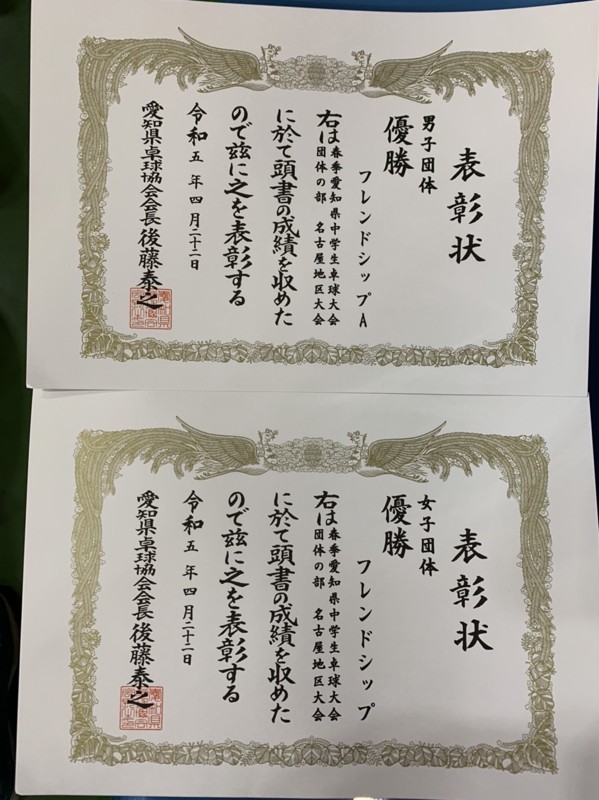 表彰状
男子団体
優勝
フレンドシップA
右は春季愛知県中学生卓球大会
団体の部 名古屋地区大会
に於て頭書の成績を収めた
ので玆に之を表彰する
令和五年四月二十二日
愛知県卓球協会会長 後藤泰之
表彰状
女子団体
優勝
フレンドシップ
右は春季愛知県中学生卓球大会
団体の部 名古屋地区大会
に於て頭書の成績を収めた
ので玆に之を表彰する
令和五年四月二十二日
愛知県卓球協会会長 後藤泰之